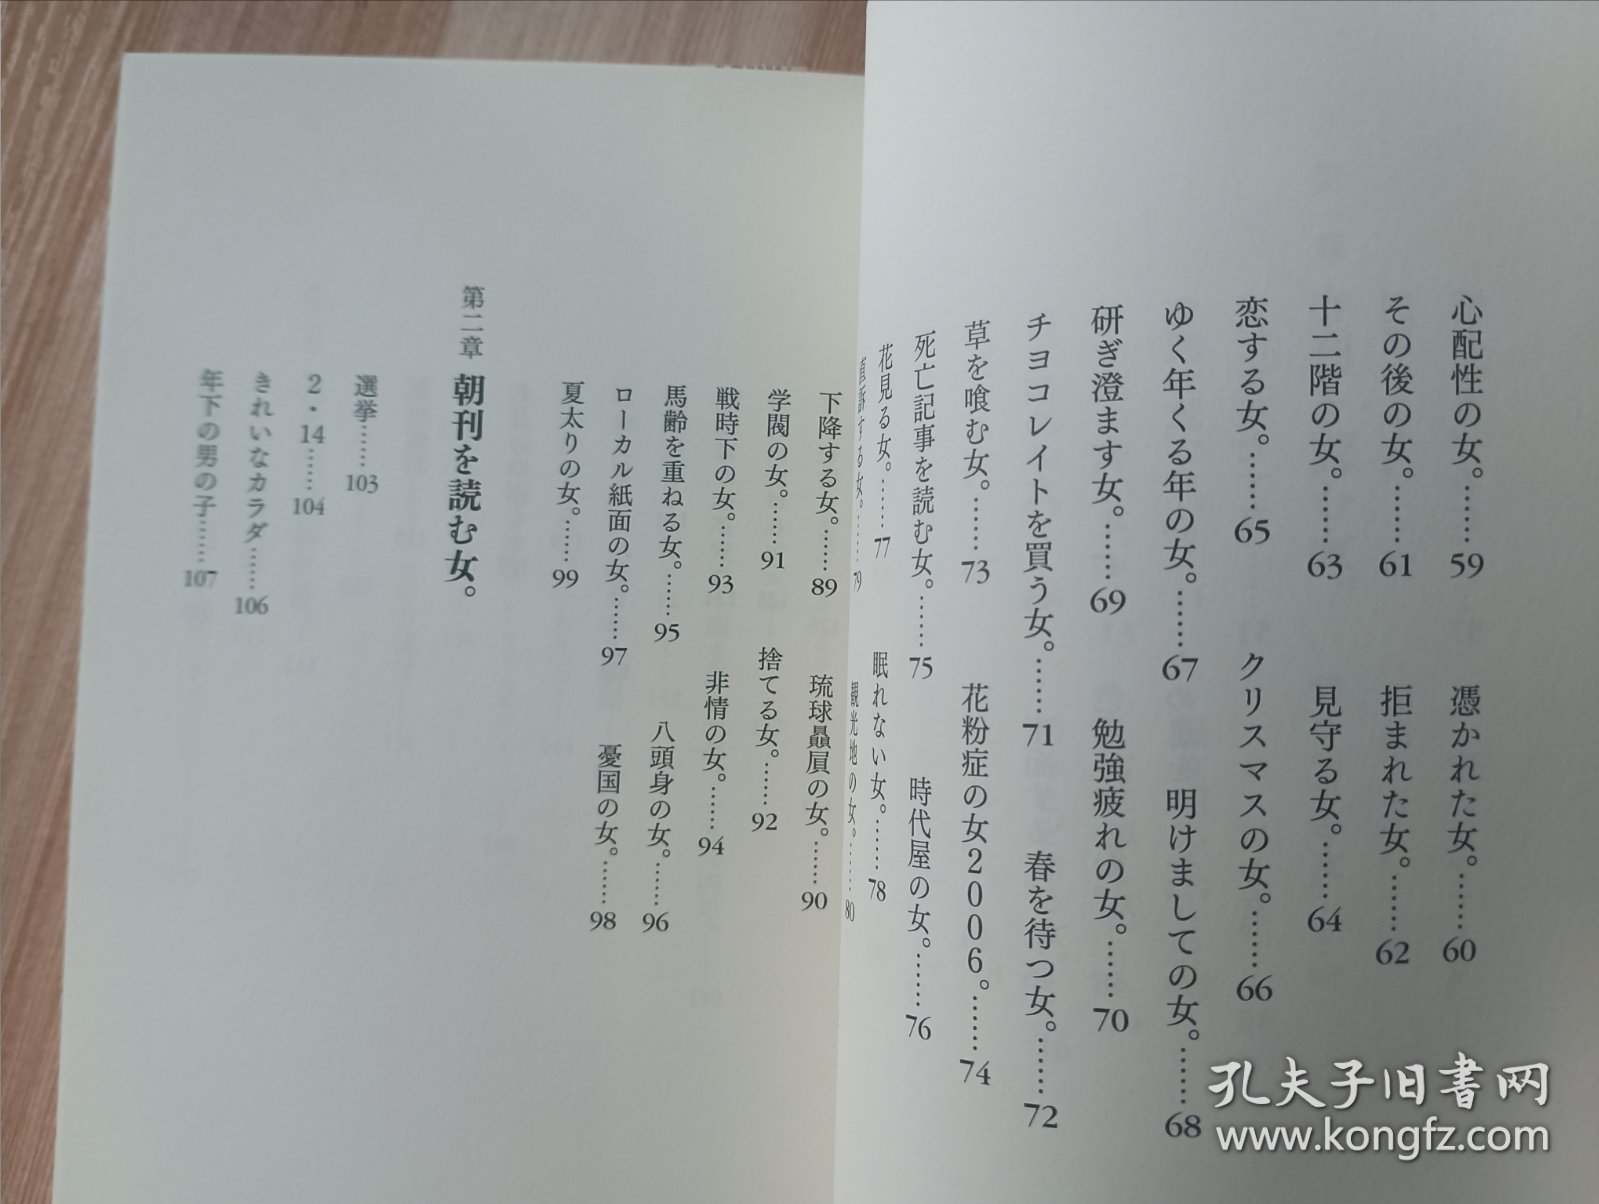 心配性の女。……59　憑かれた女。……60
その後の女。……61　拒まれた女。……62
十二階の女。……63　見守る女。……64
恋する女。……65　クリスマスの女。……66
ゆく年くる年の女。……67　明けましての女。……68
研ぎ澄ます女。……69　勉強疲れの女。……70
チヨコレイトを買う女。……71　春を待つ女。……72
草を喰む女。……73　花粉症の女2006。……74
死亡記事を読む女。……75　時代屋の女。……76
花見る女。……77　眠れない女。……78
直訴する女。……79　観光地の女。……80
下降する女。……89　琉球贔屓の女。……90
学閥の女。……91　捨てる女。……92
戦時下の女。……93　非情の女。……94
馬齢を重ねる女。……95　八頭身の女。……96
ローカル紙面の女。……97　憂国の女。……98
夏太りの女。……99
第二章 朝刊を読む女。
選挙……103
2・14……104
きれいなカラダ……106
年下の男の子……107
孔夫子旧书网
www.kongfz.com